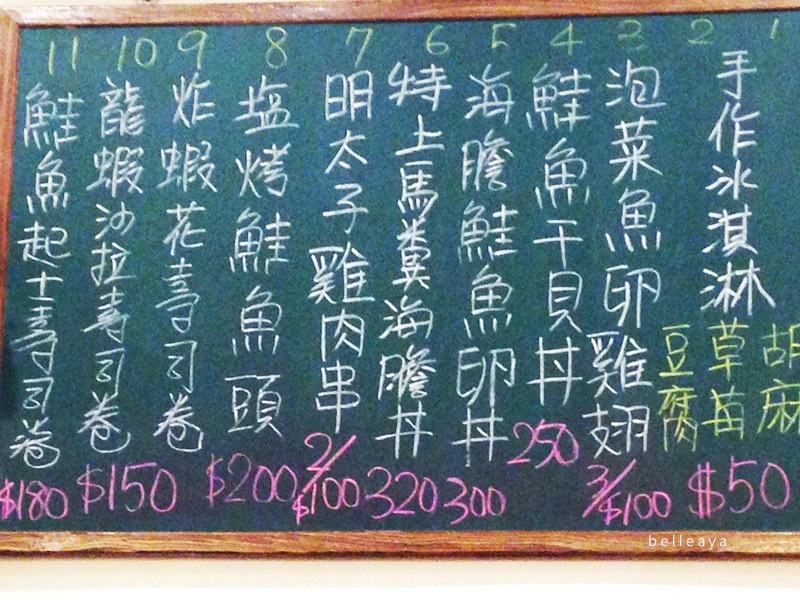 1 2 手作冰淇淋
胡麻
草莓
豆腐
$50
3 泡菜魚卵雞翅 3/$100
4 鮭魚干貝丼 250
5 海膽鮭魚卵丼 300
6 特上馬糞海膽丼 320
7 明太子雞肉串 2/$100
8 塩烤鮭魚頭 $200
9 炸蝦花壽司卷
10 龍蝦沙拉壽司卷 $150
11 鮭魚起士壽司卷 $180
belleaya